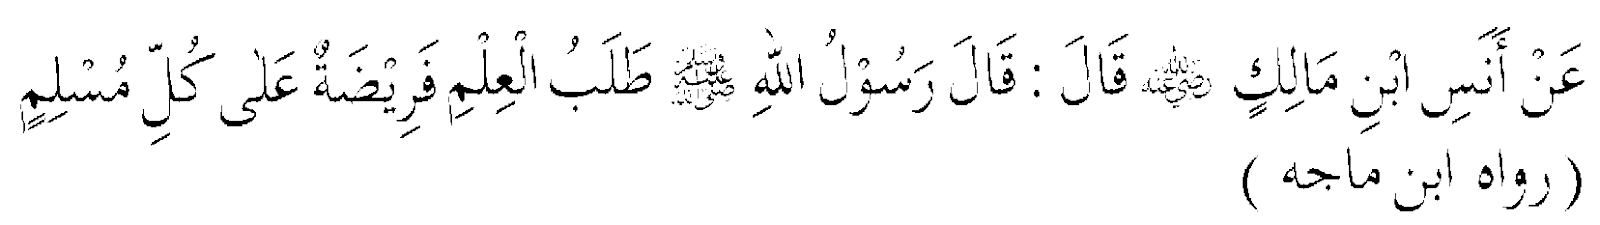 عَنْ أَنَسِ ابْنِ مَالِكٍ ﷜ قَالَ : قَالَ رَسُوْلُ اللهِ ﷺ طَلَبُ الْعِلْمِ فَرِيْضَةٌ عَلٰى كُلِّ مُسْلِمٍ
( رواه ابن ماجه )